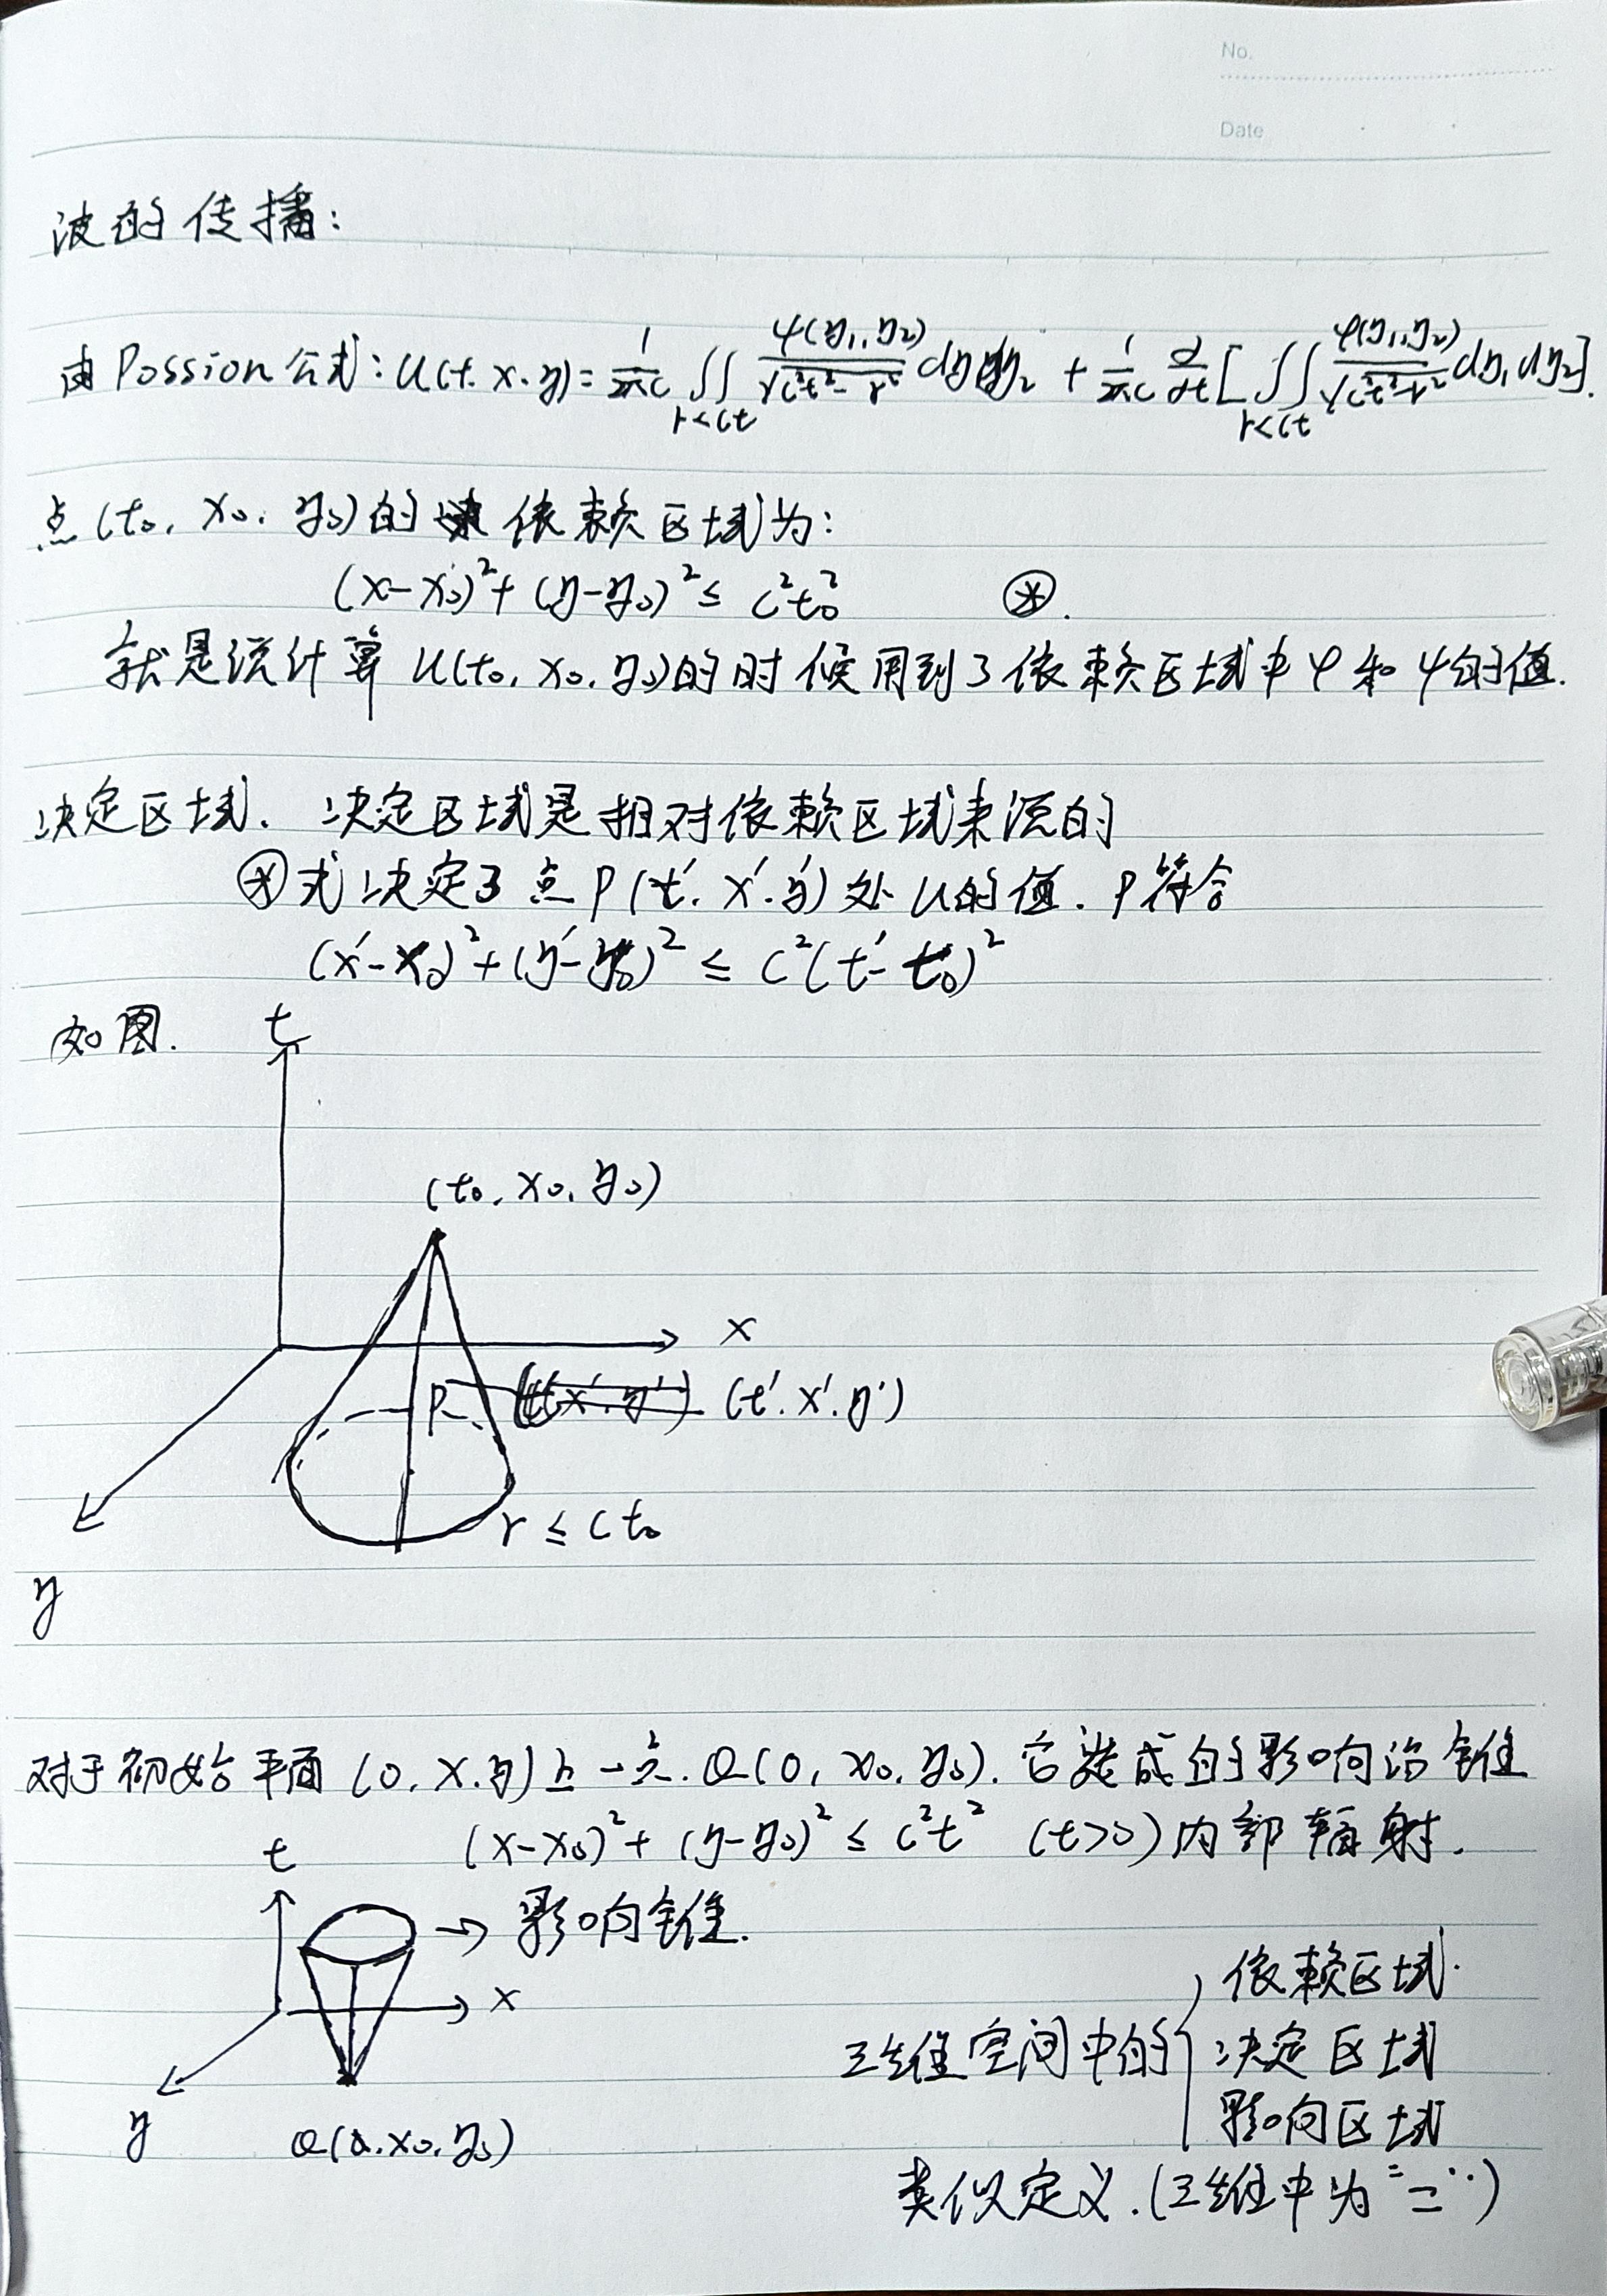 No.
Date
波的传播:
由Possion公式: u(t.x.y)= 1/2πc ∬_{r<ct} ψ(y₁,y₂)/√(c²t²-r²) dy₁dy₂ + 1/2πc ∂/∂t [∬_{r<ct} φ(y₁,y₂)/√(c²t²-r²) dy₁dy₂].
点(t₀, x₀, y₀)的 依赖区域为:
(x-x₀)²+(y-y₀)² ≤ c²t₀² ⊛.
就是说计算 u(t₀, x₀, y₀)的时候用到了依赖区域中φ和ψ的值.
决定区域. 决定区域是相对依赖区域来说的
⊛式决定了点P(t'. x'. y')处u的值. P符合
(x'-x₀)²+(y'-y₀)² ≤ c²(t'-t₀)²
如图.
t
(t₀, x₀, y₀)
x
P (t'. x'. y')
r ≤ ct₀
y
对于初始平面 (0, x.y)上一点. Q(0, x₀, y₀). 它造成的影响沿锥
(x-x₀)²+(y-y₀)² ≤ c²t² (t>0)内部辐射.
t
→ 影响锥.
x
y
Q(0.x₀.y₀)
三维空间中的{
依赖区域.
决定区域
影响区域
类似定义.(三维中为"=")